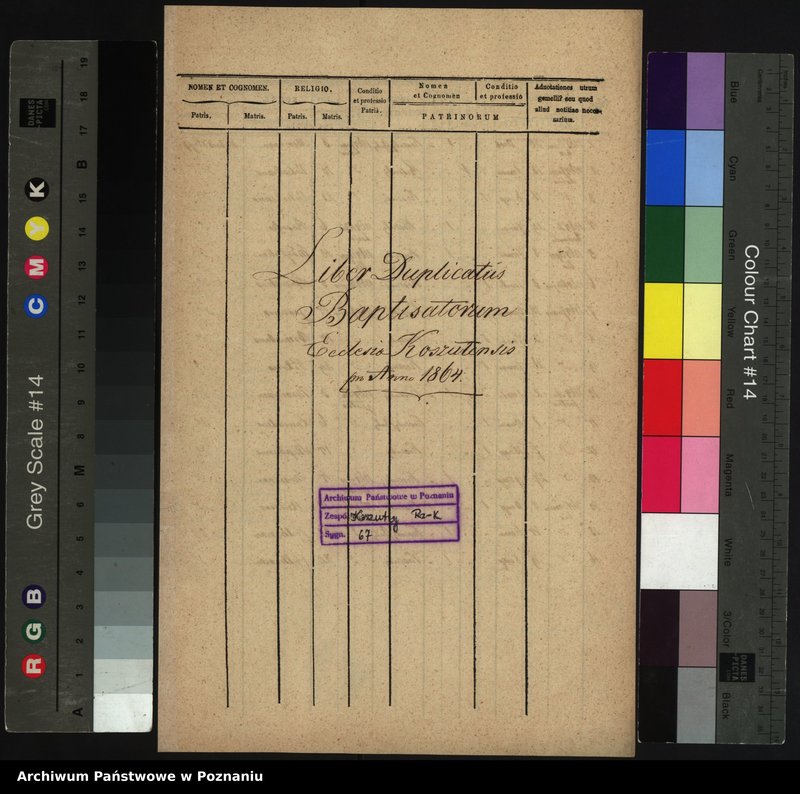 NOMEN ET COGNOMEN.
RELIGIO.
Conditio et professio Patris.
Nomen et Cognomen
Conditio et professio
Adnotationes utrum gemelli? seu quod aliud notitiae necessarium.
Patris.
Matris.
Patris.
Matris.
PATRINORUM
Liber Duplicatus
Baptisatorum
Ecclesia Koszutensis
pro Anno 1864.
Archiwum Państwowe w Poznaniu
Zespół Koszuty Rz-K
Sygn. 67
Grey Scale #14
Colour Chart #14
DANES PICTA
R G B
C M Y K
A 1 2 3 4 5 6 M 8 9 10 11 12 13 14 15 B 17 18 19
Blue
Cyan
Green
Yellow
Red
Magenta
White
3/Color
Black
DANES PICTA
Archiwum Państwowe w Poznaniu